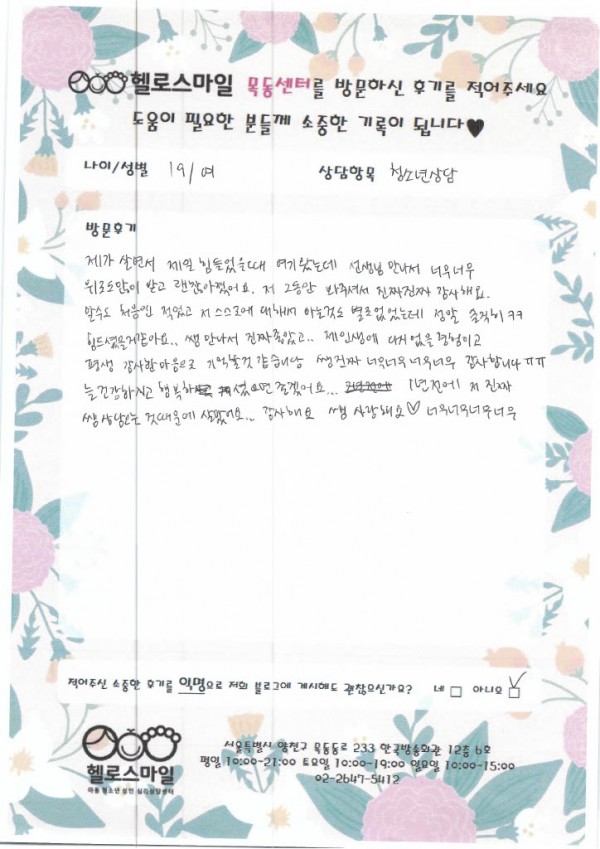 헬로스마일 목동센터를 방문하신 후기를 적어주세요
도움이 필요한 분들께 소중한 기록이 됩니다♥
나이/성별 19/여 상담항목 청소년상담
방문후기
제가 살면서 제일 힘들었을때 여기왔는데 선생님 만나서 너무너무
위로도많이 받고 괜찮아졌어요. 저 2동안 봐주셔서 진짜진짜 감사해요.
말수도 처음엔 적었고 저 스스로에 대해서 아는것도 별로없었는데 정말 솔직히 ㅋㅋ
힘드셨을거같아요.. 쌤 만나서 진짜좋았고.. 제인생에 다시없을 경험이고
평생 감사한마음으로 기억될것 같습니당 쌤진짜 너무너무너무너무 감사합니다 ㅠㅠ
늘건강하시고 행복하셨으면 좋겠어요... 1년전에 저 진짜
쌤상담오는 것때문에 살았어요... 감사해요 쌤 사랑해요♡ 너무너무너무너무
적어주신 소중한 후기를 익명으로 저희 블로그에 게시해도 괜찮으신가요? 네 □ 아니오 ☑
헬로스마일
아동 청소년 성인 심리상담센터
서울특별시 양천구 목동동로 233 한국방송회관 12층 6호
평일 10:00-21:00 토요일 10:00-19:00 일요일 10:00-15:00
02-2647-5412